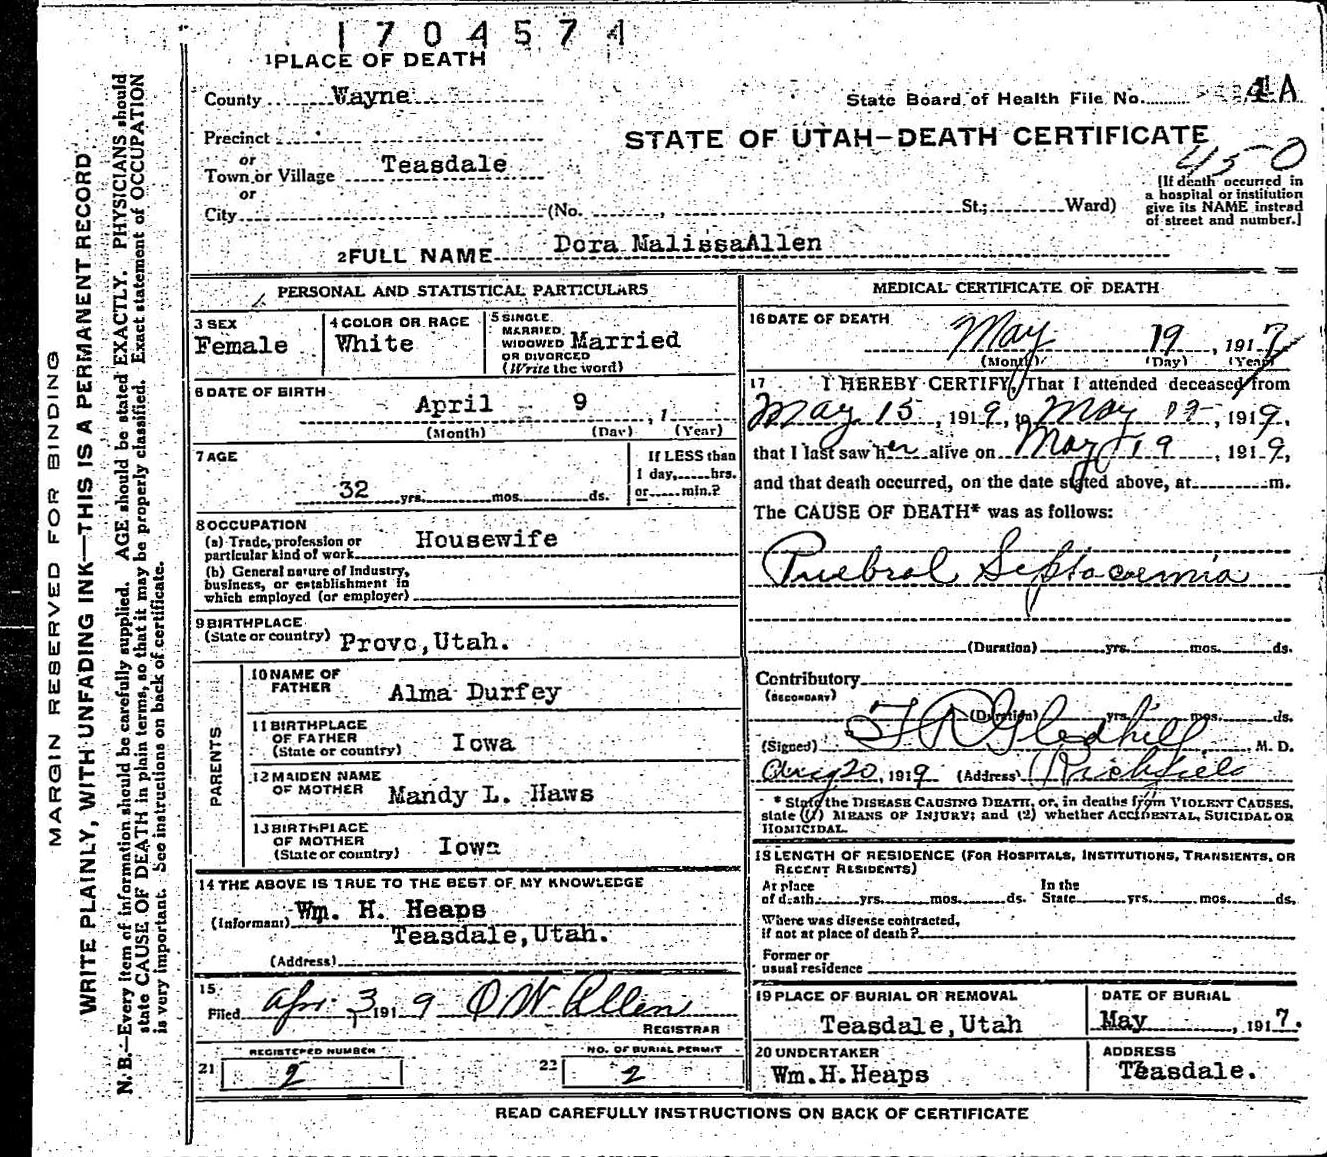 1704574
1 PLACE OF DEATH
County Wayne
State Board of Health File No. 4A
Precinct
STATE OF UTAH—DEATH CERTIFICATE
450
or
Town or Village Teasdale
or
City (No. , St.; Ward)
[If death occurred in
a hospital or institution
give its NAME instead
of street and number.]
2 FULL NAME Dora MalissaAllen
PERSONAL AND STATISTICAL PARTICULARS
3 SEX
Female
4 COLOR OR RACE
White
5 SINGLE
MARRIED
WIDOWED
OR DIVORCED
(Write the word)
Married
6 DATE OF BIRTH
April 9 , 1
(Month) (Day) (Year)
7 AGE
32 yrs. mos. ds.
If LESS than
1 day, hrs.
or min.?
8 OCCUPATION
(a) Trade, profession or
particular kind of work Housewife
(b) General nature of Industry,
business, or establishment in
which employed (or employer)
9 BIRTHPLACE
(State or country) Provo,Utah.
PARENTS
10 NAME OF
FATHER Alma Durfey
11 BIRTHPLACE
OF FATHER
(State or country) Iowa
12 MAIDEN NAME
OF MOTHER Mandy L. Haws
13 BIRTHPLACE
OF MOTHER
(State or country) Iowa
14 THE ABOVE IS TRUE TO THE BEST OF MY KNOWLEDGE
(Informant) Wm. H. Heaps
Teasdale,Utah.
(Address)
15
Filed Apr. 3 1919 O W Allen
REGISTRAR
REGISTERED NUMBER
21 2
NO. OF BURIAL PERMIT
22 2
MEDICAL CERTIFICATE OF DEATH
16 DATE OF DEATH
May 19 , 1917
(Month) (Day) (Year)
17 I HEREBY CERTIFY, That I attended deceased from
May 15 , 1919, to May 19 , 1919,
that I last saw her alive on May 19 , 1919,
and that death occurred, on the date stated above, at m.
The CAUSE OF DEATH* was as follows:
Puebral Septacemia
(Duration) yrs. mos. ds.
Contributory
(SECONDARY)
(Duration) yrs. mos. ds.
(Signed) Gledhill, M. D.
Aug 20, 1919 (Address) Richfield
* State the DISEASE CAUSING DEATH, or, in deaths from VIOLENT CAUSES,
state (1) MEANS OF INJURY; and (2) whether ACCIDENTAL, SUICIDAL OR
HOMICIDAL.
18 LENGTH OF RESIDENCE (FOR HOSPITALS, INSTITUTIONS, TRANSIENTS, OR
RECENT RESIDENTS)
At place
of death yrs. mos. ds.
In the
State yrs. mos. ds.
Where was disease contracted,
if not at place of death?
Former or
usual residence
19 PLACE OF BURIAL OR REMOVAL
Teasdale,Utah
DATE OF BURIAL
May , 1917.
20 UNDERTAKER
Wm.H.Heaps
ADDRESS
Teasdale.
READ CAREFULLY INSTRUCTIONS ON BACK OF CERTIFICATE
MARGIN RESERVED FOR BINDING
WRITE PLAINLY, WITH UNFADING INK—THIS IS A PERMANENT RECORD
N. B.—Every item of information should be carefully supplied. AGE should be stated EXACTLY. PHYSICIANS should
state CAUSE OF DEATH in plain terms, so that it may be properly classified. Exact statement of OCCUPATION
is very important. See instructions on back of certificate.